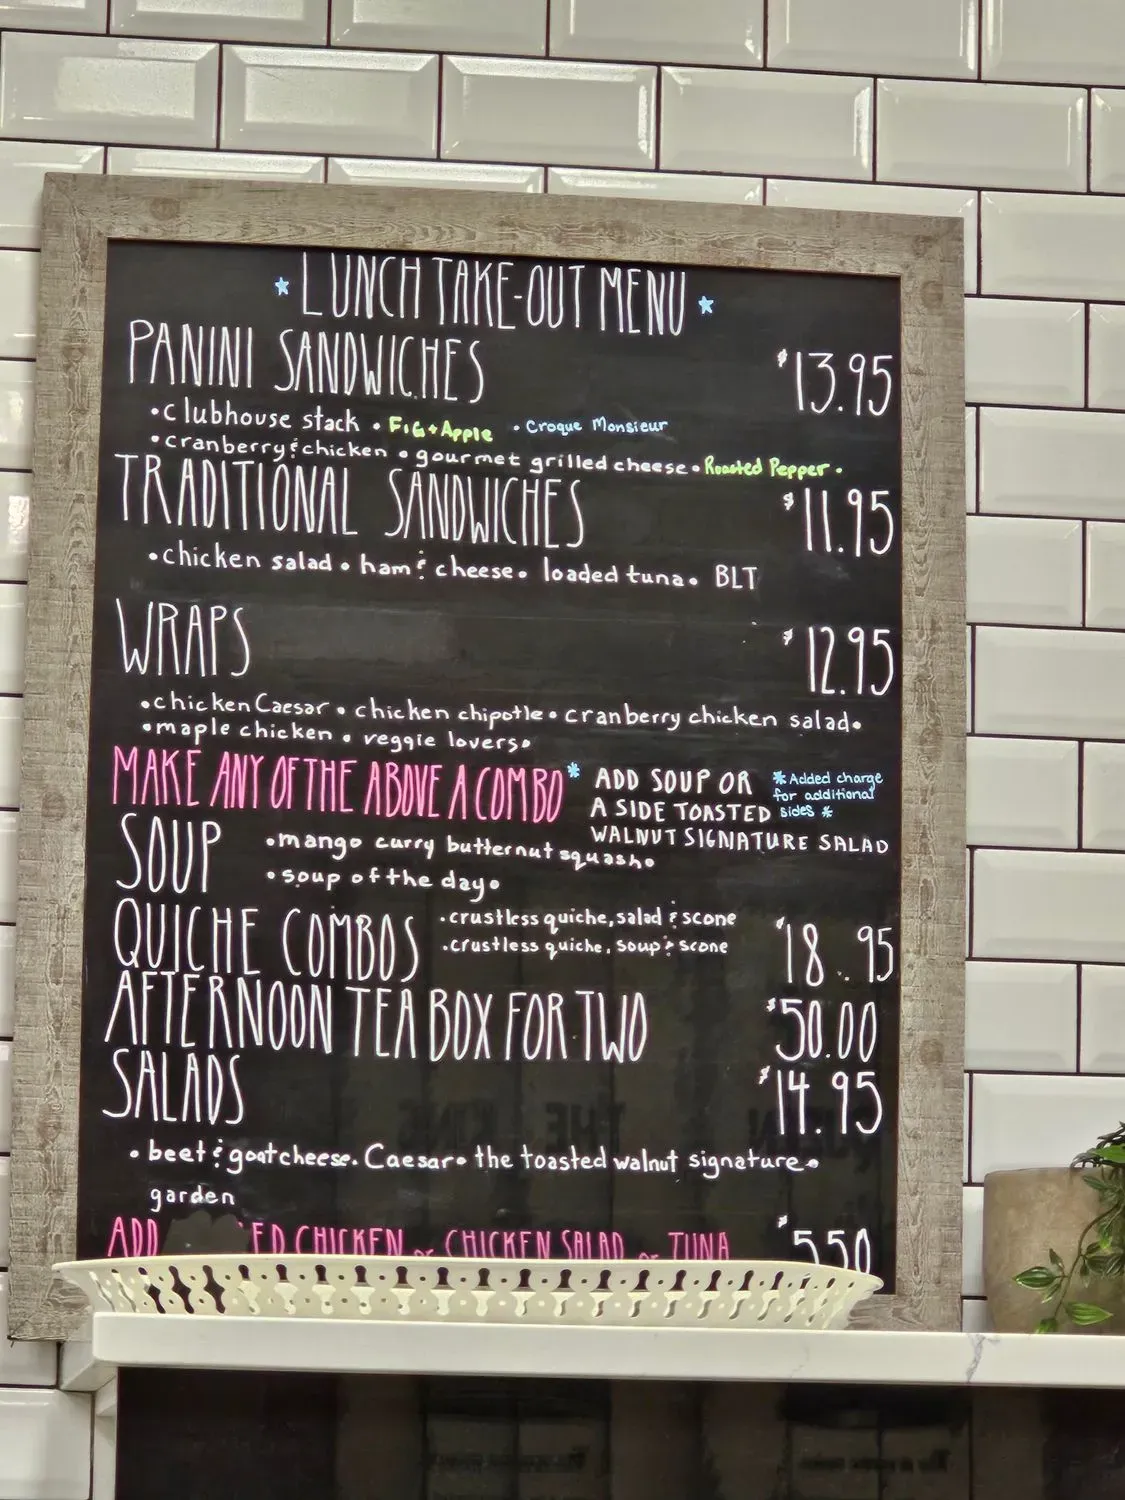 LUNCH TAKE-OUT MENU
PANINI SANDWICHES $13.95
• clubhouse stack • Fig + Apple • Croque Monsieur
• cranberry & chicken • gourmet grilled cheese • Roasted Pepper •
TRADITIONAL SANDWICHES $11.95
• chicken salad • ham & cheese • loaded tuna • BLT
WRAPS $12.95
• chicken Caesar • chicken chipotle • cranberry chicken salad •
• maple chicken • veggie lovers •
MAKE ANY OF THE ABOVE A COMBO*
ADD SOUP OR
A SIDE TOASTED
WALNUT SIGNATURE SALAD
* Added charge
for additional
sides *
SOUP
• mango curry butternut squash •
• soup of the day •
QUICHE COMBOS $18.95
• crustless quiche, salad & scone
• crustless quiche, soup & scone
AFTERNOON TEA BOX FOR TWO $50.00
SALADS $14.95
• beet & goat cheese. Caesar • the toasted walnut signature •
garden
ADD CHICKEN or CHICKEN SALAD or TUNA $5.50